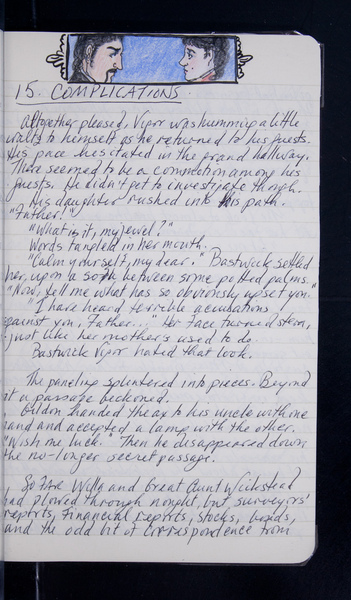 15. COMPLICATIONS
Altogether pleased, Vigor was humming a little
waltz to himself as he returned to his guests.
His pace hesitated in the grand hallway.
There seemed to be a commotion among his
guests. He didn't get to investigate though.
His daughter rushed into his path.
"Father!"
"What is it, my jewel?"
Words tangled in her mouth.
"Calm yourself, my dear." Bastwick settled
her upon a sofa between some potted palms.
"Now, tell me what has so obviously upset you."
"I have heard terrible accusations
against you, Father..." Her face turned stern,
just like her mother's used to do.
Bastwick Vigor hated that look.
The paneling splintered into pieces. Beyond
it a passage beckoned.
handed the ax to his uncle with one
hand and accepted a lamp with the other.
"Wish me luck." Then he disappeared down
the no-longer secret passage.
So far Willa and Great Aunt Wickstead
had plowed through nought but surveyors'
reports, financial reports, stocks, bonds,
and the odd bit of correspondence from